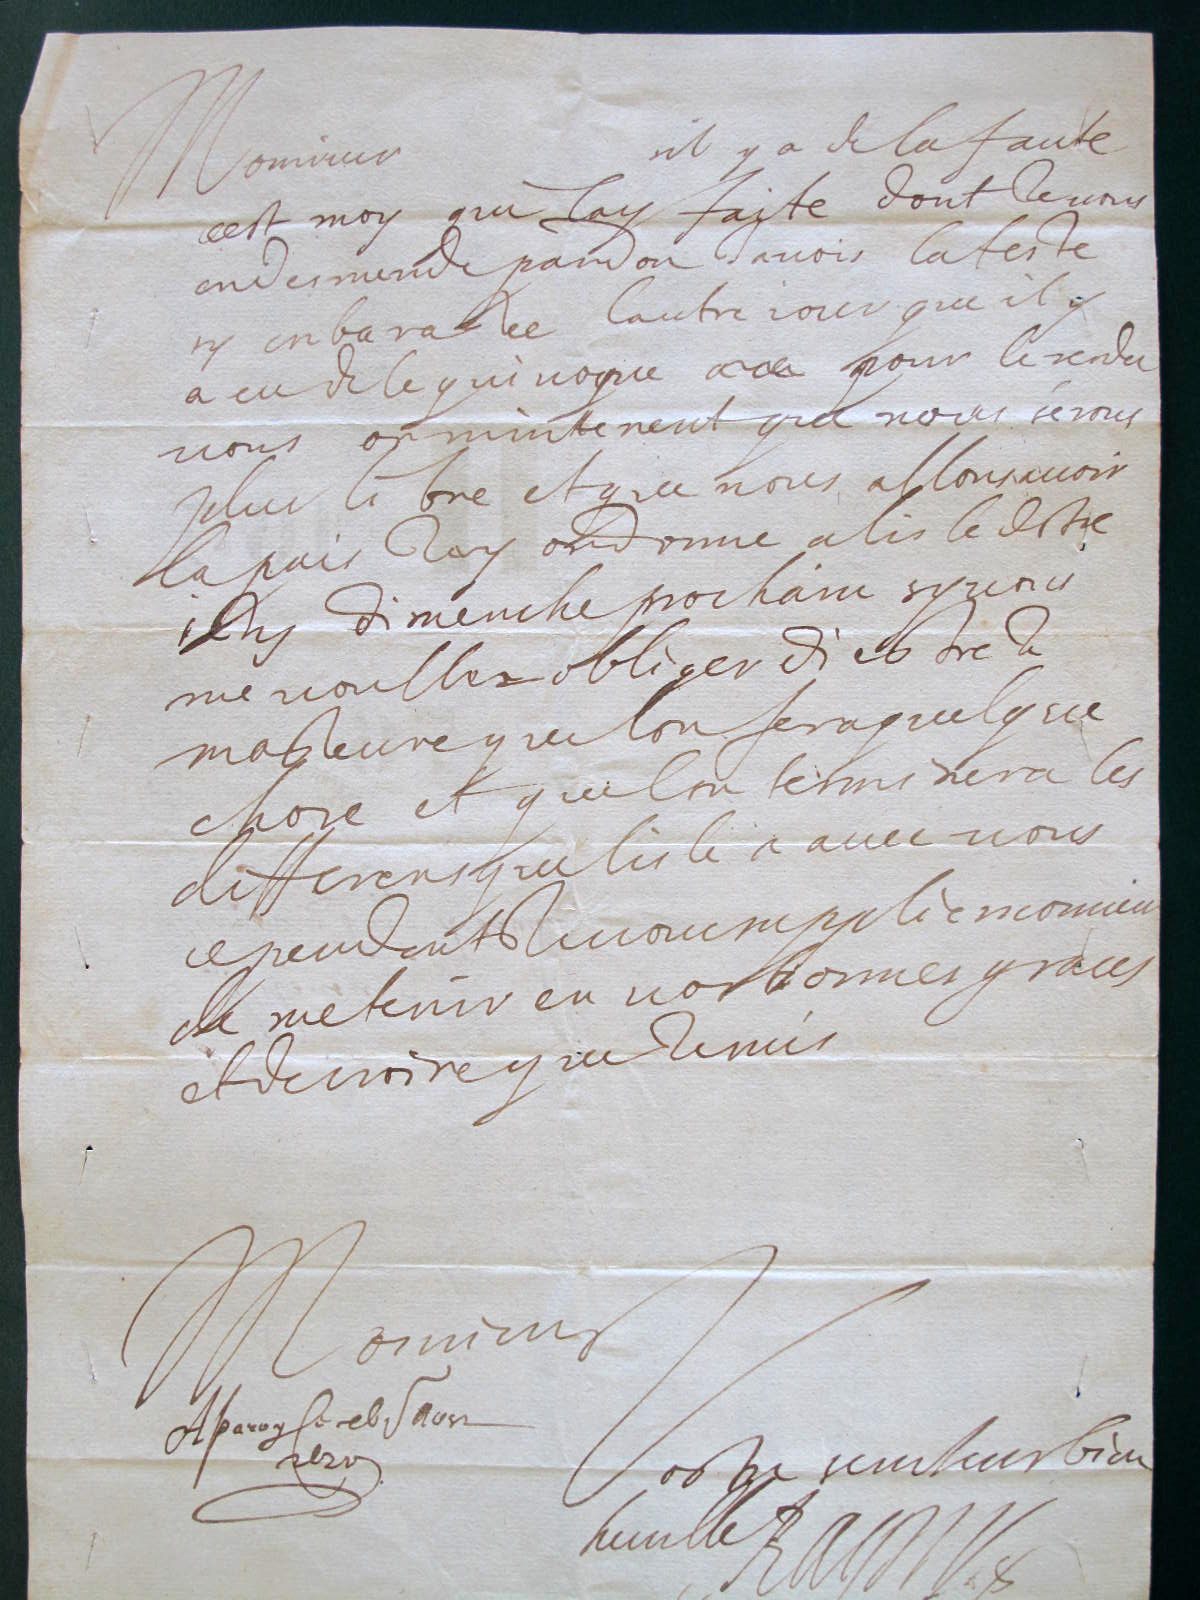 Monsieur sil y a de la faute
cest moy qui Jay fayte dont Je vous
en desmende pardon Javois la teste
sy enbarassee lautre iour que il y
a eu de lequivoque pour le rendu
vous or mintenent que nous serons
plus libre et que nous allons avoir
la pais Jay ordonne a lisle destre
icy dimenche prochain sy vous
me voulles obliger di estre Je
masseure que lon fera quelque
chose et que lon terminera les
differens que lisle a avec vous
cependent Je vous supplie monsieur
de me tenir en vos bonnes graces
et de croire que Je suis
Monsieur
A paroy ce
vostre serviteur bien
humble